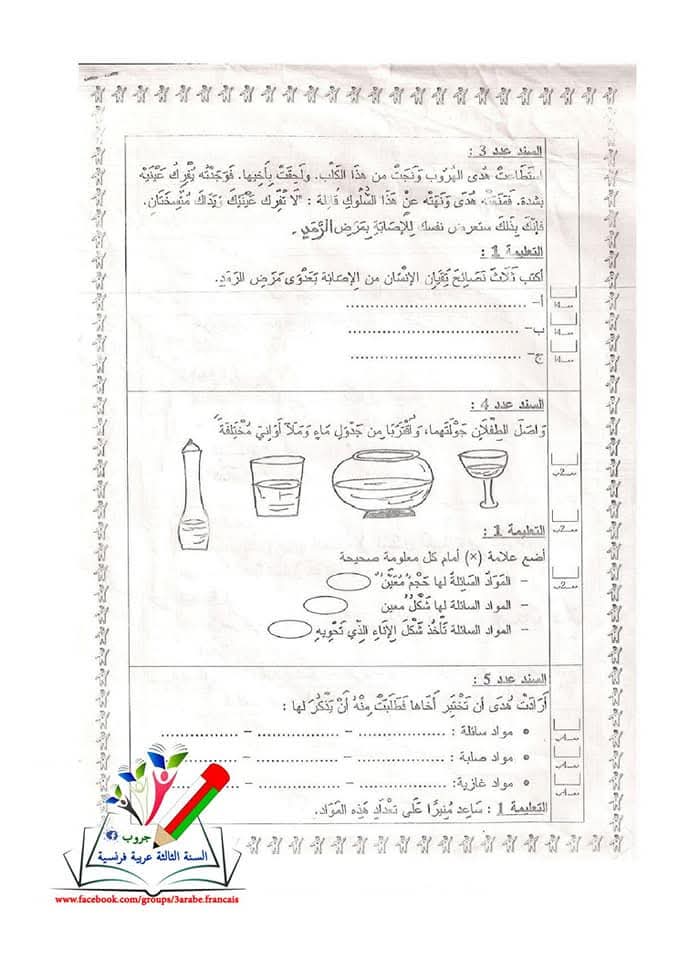 السند عدد 3 :
استطاعت هدى الهروب ونجت من هذا الكلب. ولحقت بأخيها. فوجدته يفرك عينيه
بشدة. فمنعته هدى ونهته عن هذا السلوك قائلة : "لا تفرك عينيك ويداك متسختان.
فإنك بذلك ستعرض نفسك للإصابة بمرض الرمد.
التعليمة 1 :
أكتب ثلاث نصائح يقيان الإنسان من الإصابة بعدوى مرض الرمد.
أ- ........................................
ب- ........................................
ج- ........................................
السند عدد 4 :
واصل الطفلان جولتهما، واقتربا من جدول ماء وملآ أواني مختلفة
التعليمة 1 :
أضع علامة (×) أمام كل معلومة صحيحة
- المواد السائلة لها حجم معين
- المواد السائلة لها شكل معين
- المواد السائلة تأخذ شكل الإناء الذي تحويه
السند عدد 5 :
أرادت هدى أن تختبر أخاها فطلبت منه أن يذكر لها :
• مواد سائلة : ................ - ................ - ................
• مواد صلبة : ................ - ................
• مواد غازية: ................ - ................ - ................
التعليمة 1 : ساعد منيرا على تعداد هذه المواد.
جروب
السنة الثالثة عربية فرنسية
www.facebook.com/groups/3arabe.francais